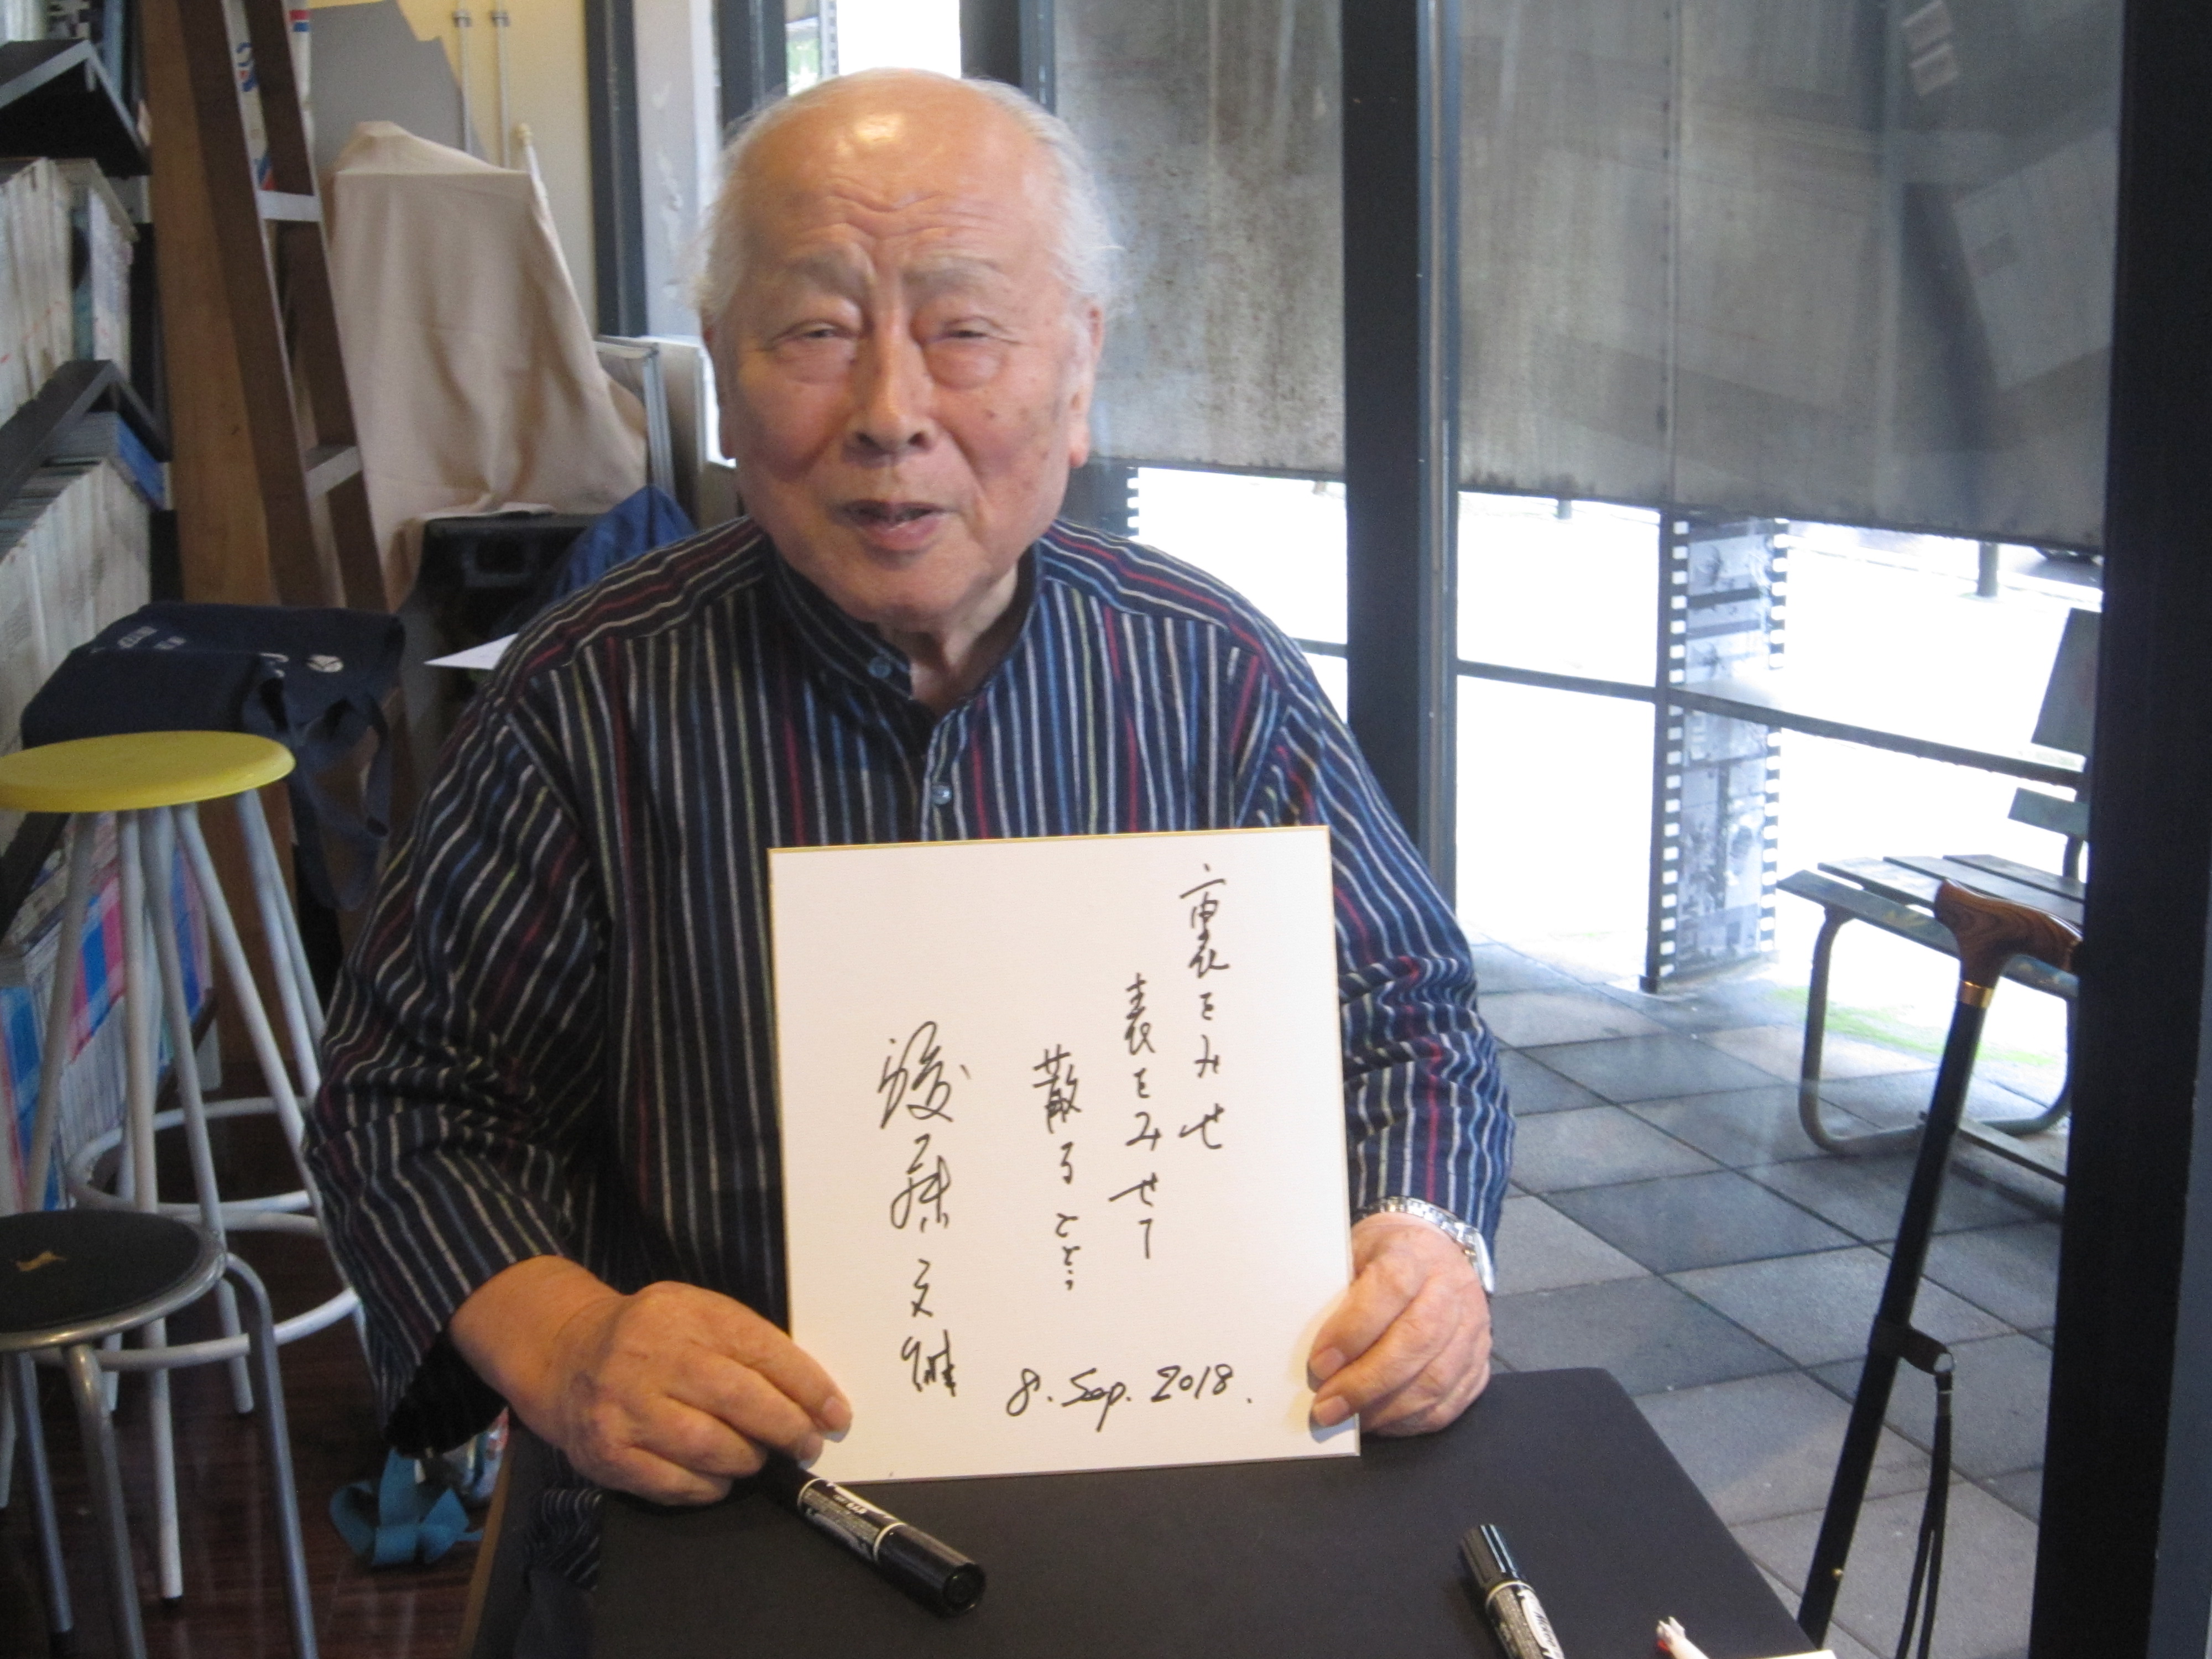 裏をみせ
表をみせて
散る
後藤文雄
8. Sep. 2018.